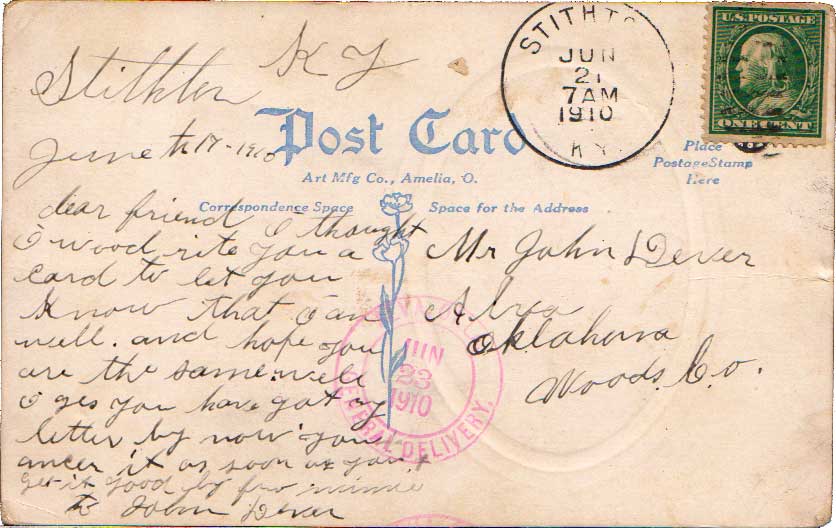 Stithton KY
June th 17-1910
dear friend I thought
I wood rite you a
card to let you
know that I am
well. and hope you
are the same. well
I ges you have got my
letter by now you
ancer it as soon as you
get it good by fro minnie
to John Dever
Post Card
Art Mfg Co., Amelia, O.
Correspondence Space
Space for the Address
Mr John Dever
Alva
Oklahoma
Woods. Co.
STITHTO
JUN
21
7AM
1910
KY.
U.S. POSTAGE
ONE CENT
Place
Postage Stamp
Here
JUN
23
1910
GENERAL DELIVERY.